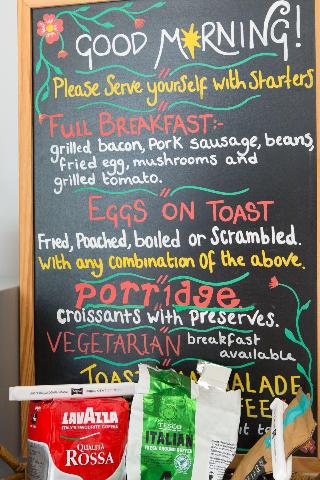 GOOD MORNING!
Please Serve yourself with Starters
FULL BREAKFAST:-
grilled bacon, Pork sausage, beans,
fried egg, mushrooms and
grilled tomato.
EGGS ON TOAST
Fried, Poached, boiled or Scrambled.
With any combination of the above.
porridge
croissants with preserves.
VEGETARIAN breakfast
available
TOAST
LAVAZZA
ITALY'S FAVOURITE COFFEE
QUALITÀ
ROSSA
TESCO
ITALIAN
FRESH GROUND COFFEE